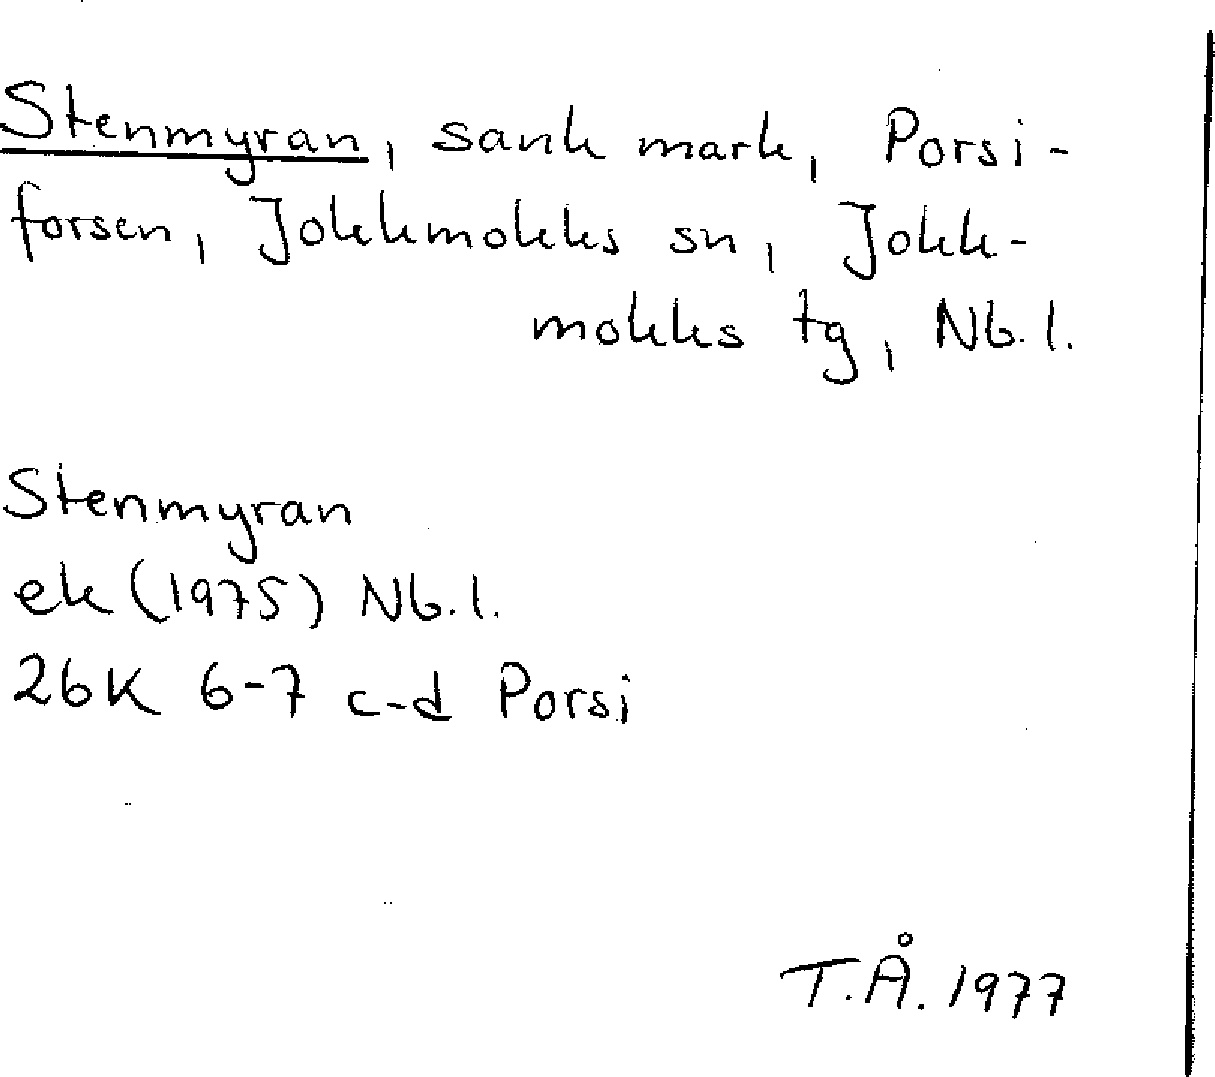 Stenmyran, sank mark, Porsi-
forsen, Jokkmokks sn, Jokk-
mokks tg, Nb.l.
Stenmyran
ek (1975) Nb.l.
26K 6-7 c-d Porsi
T.Å. 1977